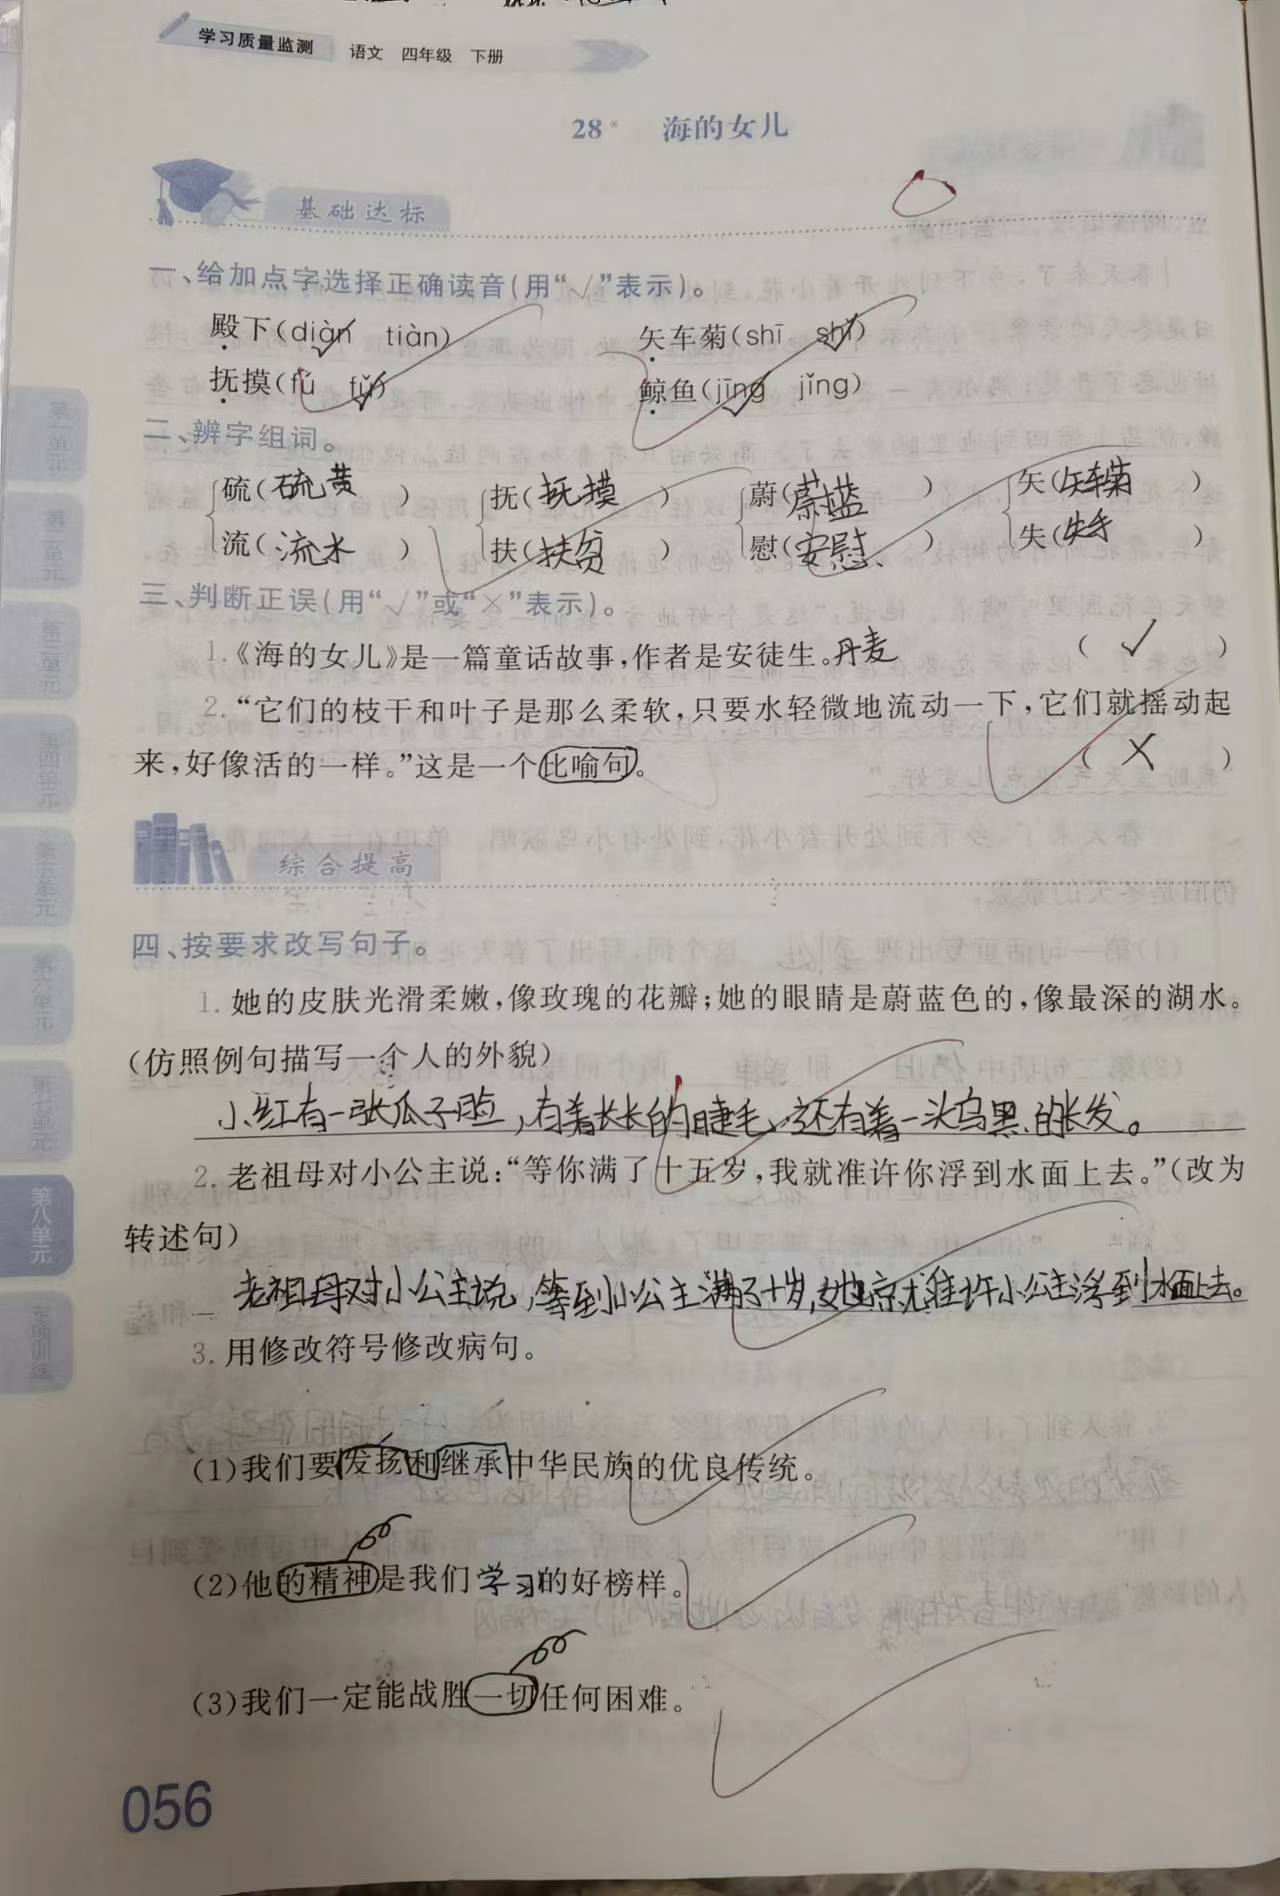 学习质量监测 语文 四年级 下册
28* 海的女儿
基础达标
一、给加点字选择正确读音(用“√”表示)。
殿下(diàn tiàn) 矢车菊(shī shǐ)
抚摸(fú fǔ) 鲸鱼(jīng jǐng)
二、辨字组词。
硫(硫黄) 抚(抚摸) 蔚(蔚蓝) 矢(矢车菊)
流(流水) 扶(扶贫) 慰(安慰) 失(失手)
三、判断正误(用“√”或“×”表示)。
1.《海的女儿》是一篇童话故事,作者是安徒生。丹麦 (√)
2.“它们的枝干和叶子是那么柔软,只要水轻微地流动一下,它们就摇动起
来,好像活的一样。”这是一个比喻句。 (×)
综合提高
四、按要求改写句子。
1.她的皮肤光滑柔嫩,像玫瑰的花瓣;她的眼睛是蔚蓝色的,像最深的湖水。
(仿照例句描写一个人的外貌)
小红有一张瓜子脸,有着长长的睫毛,还有着一头乌黑的长发。
2.老祖母对小公主说:“等你满了十五岁,我就准许你浮到水面上去。”(改为
转述句)
老祖母对小公主说,等到小公主满了十岁,她就准许小公主浮到水面上去。
3.用修改符号修改病句。
(1)我们要发扬和继承中华民族的优良传统。
(2)他的精神是我们学习的好榜样。
(3)我们一定能战胜一切任何困难。
056
第一单元
第二单元
第三单元
第四单元
第五单元
第六单元
第七单元
第八单元
专项训练